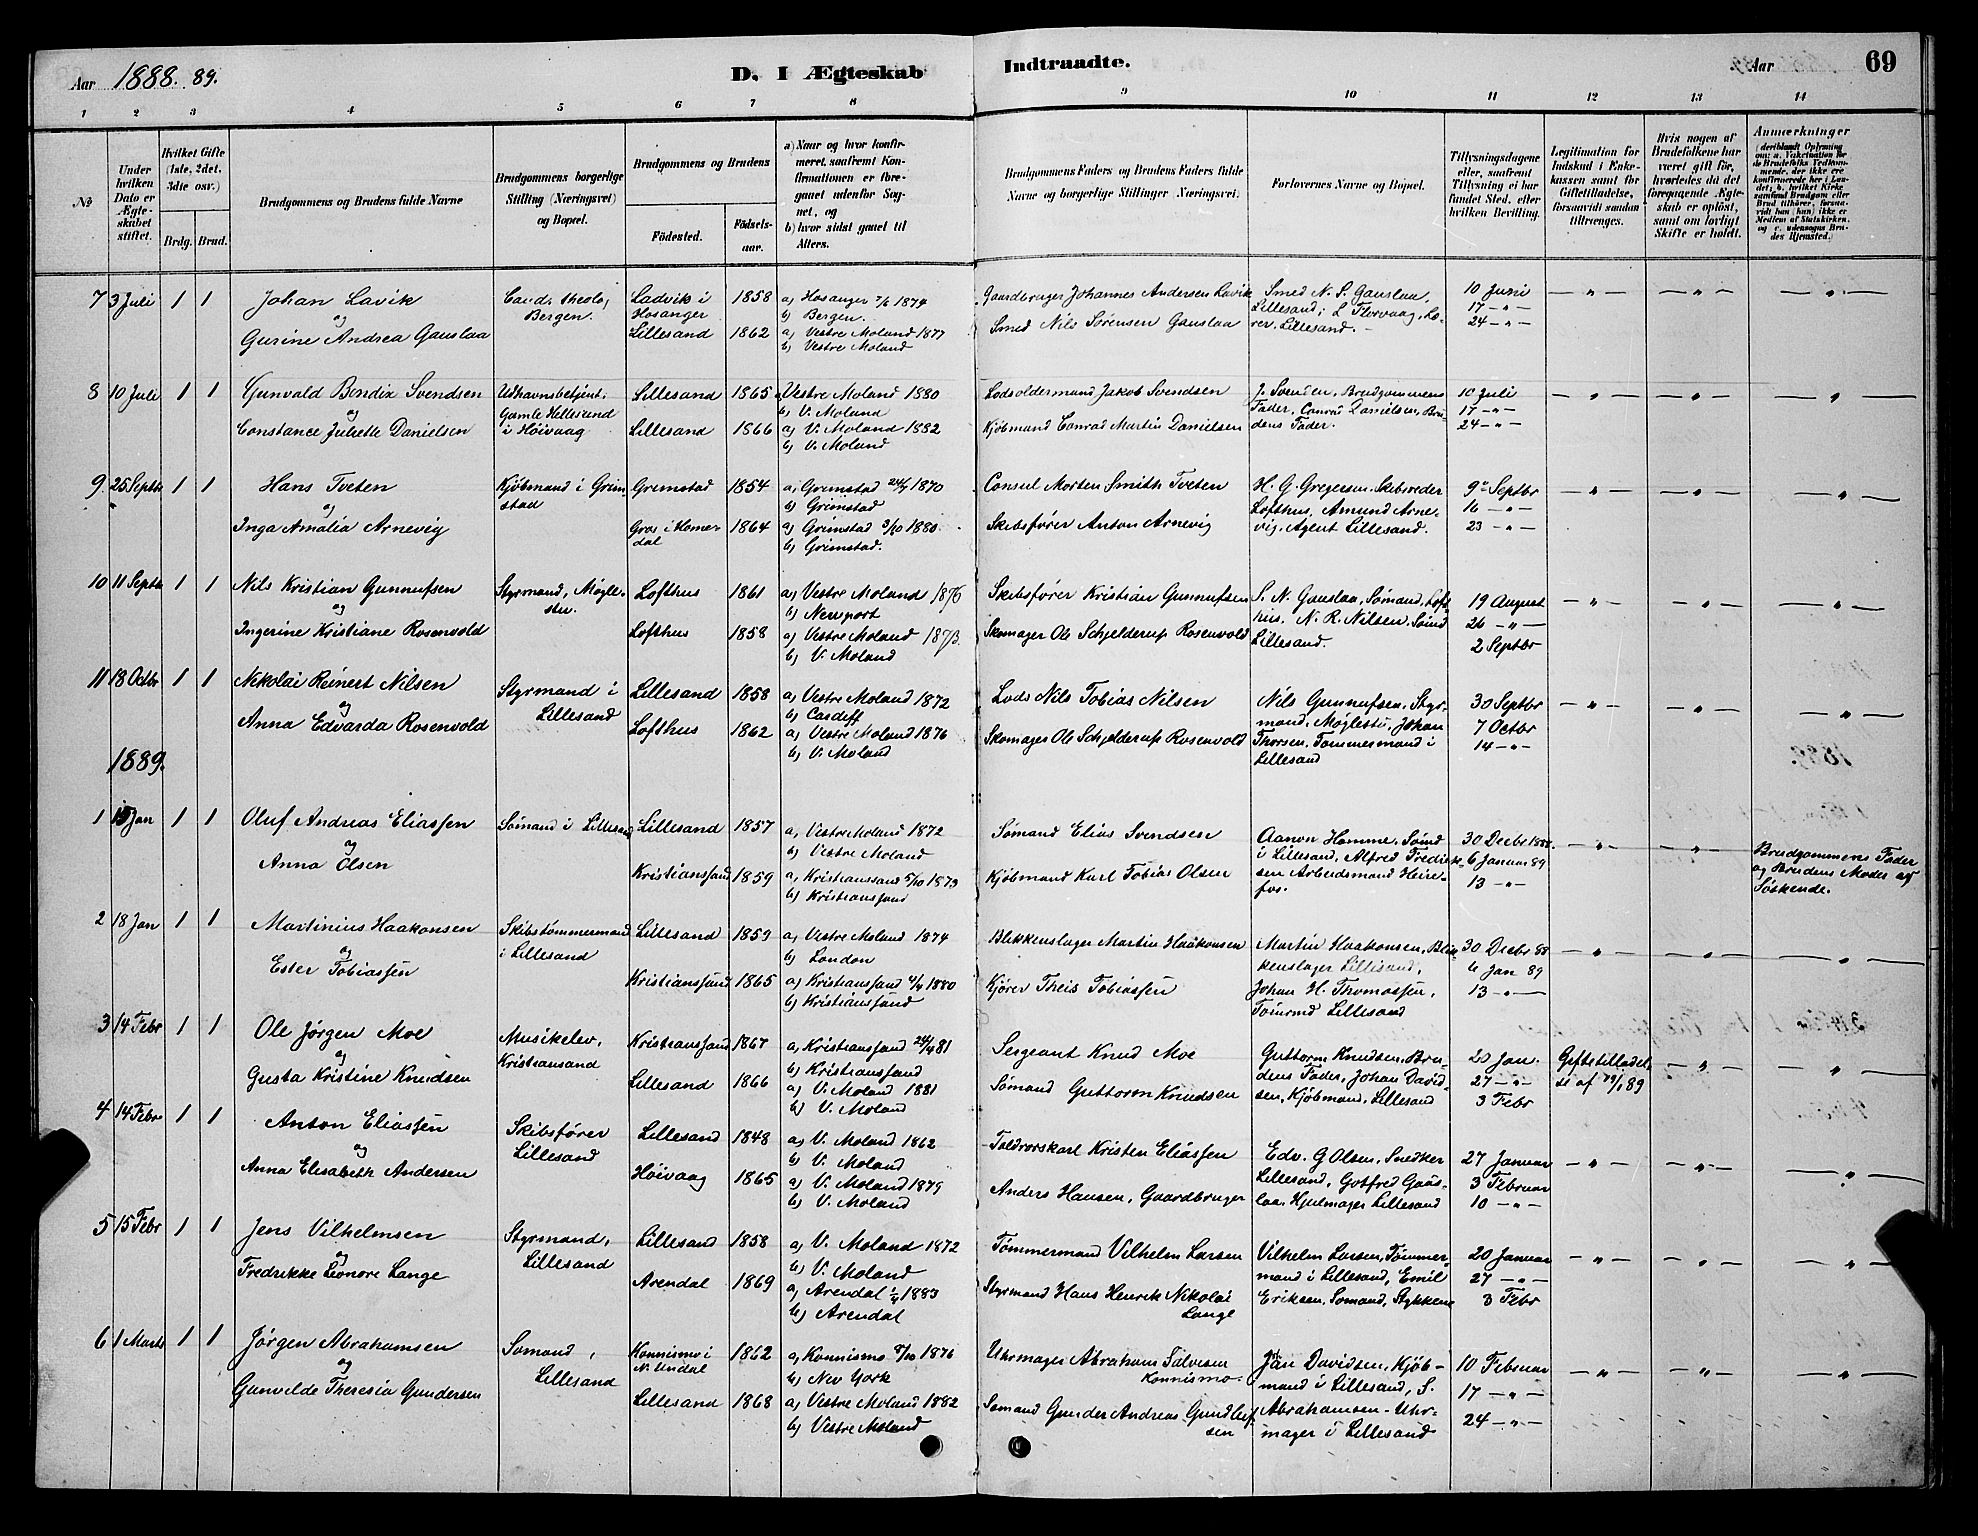 Aar 1888. 89.
D. I Ægteskab
Indtraadte.
Aar
69
1 2 3 4 5 6 7 8 9 10 11 12 13 14
No
Under hvilken Dato er Ægteskabet stiftet.
Hvilket Gifte (1ste, 2det, 3die osv.)
Brdg. Brud.
Brudgommens og Brudens fulde Navne
Brudgommens borgerlige Stilling (Næringsvei) og Bopæl.
Brudgommens og Brudens
Födested.
Födsels-aar.
a) Naar og hvor konfirmeret, saafremt Konfirmationen er foregaaet udenfor Sognet, og
b) hvor sidst gaaet til Alters.
Brudgommens Faders og Brudens Faders fulde Navne og borgerlige Stillinger (Næringsvei).
Forlovernes Navne og Bopæl.
Tillysningsdagene eller, saafremt Tillysning ei har fundet Sted, efter hvilken Bevilling.
Legitimation for Indskud i Enkekassen samt for Giftetilladelse, forsaavidt saadan tiltrænges.
Hvis nogen af Brudefolkene har været gift för, hvorledes da det foregaaende Ægteskab er oplöst, samt om lovligt Skifte er holdt.
Anmærkninger
(deriblandt Oplysning om: a. Vakcination for de Brudefolks Vedkommende, der ikke ere konfirmerede her i Landet; b. hvilket Kirkesamfund Brudgom eller Brud tilhörer, forsaavidt han (hun) ikke er Medlem af Statskirken, og c. udensogns Brudes Hjemsted.)
7 3 Juli 1 1 Johan Lavik Cand. theolog Ladvik i 1858 a) Hosanger 7/6 1874 Gaardbruger Johannes Andersen Lavik Smed N. S. Gauslaa, 10 Juni — " — — " — — " —
og Bergen. Hosanger b) Bergen. Lillesand; L Florvaag, Læ- 17 — " —
Gurine Andrea Gauslaa Lillesand 1862 a) Vestre Moland 1877 Smed Nils Sørensen Gauslaa rer, Lillesand. 24 — " —
b) Vestre Moland
8 10 Juli 1 1 Gunvald Bendix Svendsen Udhavnsbetjent, Lillesand 1865 Vestre Moland 1880 Lodsoldermand Jakob Svendsen J. Svendsen, Brudgommens 10 Juli — " — — " — — " —
og Gamle Hellesund b) V. Moland Fader, Conrad Danielsen, Bru- 17 — " —
Constance Juliette Danielsen i Høivaag Lillesand 1866 a) V. Moland 1882 Kjøbmand Conrad Martin Danielsen dens Fader. 24 — " —
b) V. Moland
9 25 Septbr 1 1 Hans Tveten Kjøbmand i Grim- Gremstad 1854 a) Grimstad 24/4 1870 Consul Morten Smith Tveten H. G. Gregersen, Skibsreder 9 Septbr — " — — " — — " —
og stad b) Grimstad Lofthus, Amund Arne- 16 — " —
Inga Amalia Arnevig Groos i Homme- 1864 a) Grimstad 3/10 1880 Skibsfører Anton Arnevig vig, Agent Lillesand. 23 — " —
dal b) Grimstad.
10 11 Septbr 1 1 Nils Kristian Gunnufsen Styrmand, Møgle- Lofthus 1861 a) Vestre Moland 1876 Skibsfører Kristian Gunnufsen S. N. Gauslaa, Sømand, Loft- 19 August — " — — " — — " —
og stu. b) Newport hus. N. R. Nilsen, Sømd 26 — " —
Ingerine Kristiane Rosenvold Lofthus 1858 a) Vestre Moland 1873. Skomager Ole Schjelderup Rosenvold Lillesand. 2 Septbr
b) V. Moland
11 18 Octbr 1 1 Nikolai Reinert Nilsen Styrmand i Lillesand 1858 a) Vestre Moland 1872 Lods Nils Tobias Nilsen Nils Gunnufsen, Styr- 30 Septbr — " — — " — — " —
og Lillesand b) Cardiff mand, Møglestu, Johan 7 Octbr
Anna Edvarda Rosenvold Lofthus 1862 a) Vestre Moland 1876 Skomager Ole Schjelderup Rosenvold Thorsen, Tømmermand i 14 — " —
b) V. Moland Lillesand
1889.
1 15 Jan 1 1 Oluf Andreas Eliassen Sømand i Lillesand Lillesand 1857 a) Vestre Moland 1872 Sømand Elias Svendsen Aanon Homme, Sømd 30 Decbr 1888. — " — — " — Brudgommens Fader
og b) Vestre Moland i Lillesand, Alfred Fredrik- 6 Januar 89 og Brudens Moder af
Anna Olsen Kristianssand 1859 a) Kristianssand 5/10 1873 Kjøbmand Karl Tobias Olsen sen Arbeidsmand Heire- 13 — " — Søskende.
b) Kristianssand fos.
2 18 Jan 1 1 Martinius Haakonsen Skibstømmermand Lillesand 1859 a) Vestre Moland 1874 Blikkenslager Martin Haakonsen Martin Haakonsen, Blik- 30 Decbr 88 — " — — " — — " —
og i Lillesand b) London kenslager Lillesand, 6 Jan 89
Ester Tobiassen Kristianssand 1865 a) Kristianssand 4/4 1880 Kjører Theis Tobiassen Johan H. Thomassen, 13 — " —
b) Kristianssand Tømrmd Lillesand
3 14 Febr 1 1 Ole Jørgen Moe Musikelev, Kristianssand 1867 a) Kristianssand 24/4 81 Sergeant Knud Moe Guttorm Knudsen, Bru- 20 Jan. Giftetilladel- — " — — " —
og Kristianssand b) Kristianssand dens Fader, Johan David- 27 — " — se af 19/1 89
Gusta Kristine Knudsen Lillesand 1866 a) V. Moland 1881 Sømand Guttorm Knudsen sen, Kjøbmand, Lillesand 3 Febr
b) V. Moland
4 14 Febr 1 1 Anton Eliassen Skibsfører Lillesand 1848 a) V. Moland 1862 Toldrorskarl Kristen Eliassen Edv. G Olsen, Snedker 27 Januar — " — — " — — " —
og Lillesand b) V. Moland Lillesand, Gotfred Gaus- 3 Februar
Anna Elisabeth Andersen Høivaag 1865 a) V. Moland 1879 Anders Hansen, Gaardbruger laa, Hjulmager Lillesand 10 — " —
b) V. Moland
5 15 Febr 1 1 Jens Vilhelmsen Styrmand, Lillesand 1858 a) V. Moland 1872 Tømmermand Vilhelm Larsen Vilhelm Larsen, Tømmer- 20 Januar — " — — " — — " —
og Lillesand b) V. Moland mand i Lillesand, Emil 27 — " —
Fredrikke Leonore Lange Arendal 1869 a) Arendal 1/4 1883 Styrmand Hans Henrik Nikolai Eriksen, Sømand, Stykkene 3 Febr
b) Arendal Lange
6 1 Marts 1 1 Jørgen Abrahamsen Sømand, Konnismo i 1862 a) Konnismo 8/10 1876 Uhrmager Abraham Salvesen Jan Davidsen, Kjøb- 10 Februar — " — — " — — " —
og Lillesand N. Undal b) New York Konnismo. mand i Lillesand, S. 17 — " —
Gunvilde Theresia Gundersen Lillesand 1868 a) Vestre Moland 1882 Sømand Gunder Andreas Gundluf- Abrahamsen Uhr- 24 — " —
b) Vestre Moland sen mager i Lillesand